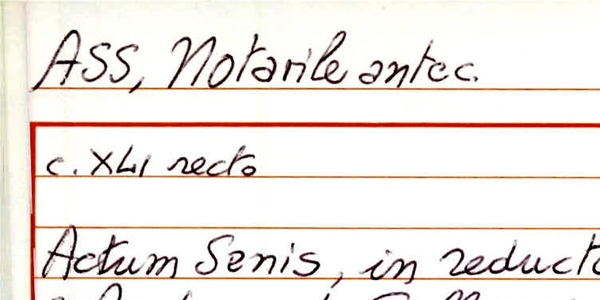 ASS, Notarile antec.
c. XLI recto
Actum Senis, in reducto